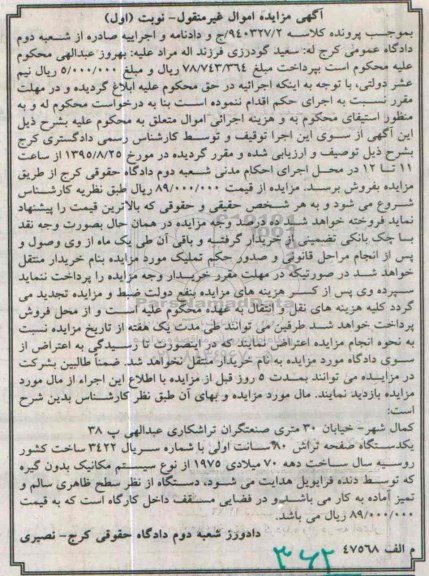 آگهی مزایده اموال غیرمنقول- نوبت (اول)
بموجب پرونده کلاسه ۹۴۰۳۲۷/۲/ج و دادنامه و اجراییه صادره از شعبه دوم
دادگاه عمومی کرج له: سعید گودرزی فرزند اله مراد علیه: بهروز عبدالهی محکوم
علیه محکوم است بپرداخت مبلغ ۷۸/۷۴۳/۳۶۴ ریال و مبلغ ۵/۰۰۰/۰۰۰ ریال نیم
عشر دولتی، با توجه به اینکه اجرائیه در حق محکوم علیه ابلاغ گردیده و در مهلت
مقرر نسبت به اجرای حکم اقدام ننموده است بنا به درخواست محکوم له و به
منظور استیفای محکوم به و هزینه اجرائی اموال متعلق به محکوم علیه بشرح ذیل
این آگهی از سوی این اجرا توقیف و توسط کارشناس رسمی دادگستری کرج
بشرح ذیل توصیف و ارزیابی شده و مقرر گردیده در مورخ ۱۳۹۵/۸/۲۵ از ساعت
۱۱ تا ۱۲ در محل اجرای احکام مدنی شعبه دوم دادگاه حقوقی کرج از طریق
مزایده بفروش برسد. مزایده از قیمت ۸۹/۰۰۰/۰۰۰ ریال طبق نظریه کارشناس
شروع می شود و به هر شخص حقیقی و حقوقی که بالاترین قیمت را پیشنهاد
نماید فروخته خواهد شد. ده درصد وجه مزایده در همان حال بصورت وجه نقد
یا چک بانکی تضمینی از خریدار گرفته و باقی آن طی یک ماه از وی وصول و
پس از انجام مراحل قانونی و صدور حکم تملیک مورد مزایده بنام خریدار منتقل
خواهد شد در صورتیکه در مهلت مقرر خریدار وجه مزایده را پرداخت ننماید
سپرده وی پس از کسر هزینه های مزایده بنفع دولت ضبط و مزایده تجدید می
گردد کلیه هزینه های نقل و انتقال به عهده محکوم علیه است و از محل فروش
پرداخت خواهد شد طرفین می توانند طی مدت یک هفته از تاریخ مزایده نسبت
به نحوه انجام مزایده اعتراض نمایند که در اینصورت تا رسیدگی به اعتراض از
سوی دادگاه مورد مزایده به نام خریدار منتقل نخواهد شد. ضمناً طالبین بشرکت
در مزایده می توانند بمدت ۵ روز قبل از مزایده با اطلاع این اجراء از مال مورد
مزایده بازدید نمایند. مال مورد مزایده و بهای آن طبق نظر کارشناس بدین شرح
است:
کمال شهر- خیابان ۳۰ متری صنعتگران تراشکاری عبدالهی پ ۳۸
یکدستگاه صفحه تراش ۸۰ سانت اولی با شماره سریال ۳۴۲۲ ساخت کشور
روسیه سال ساخت دهه ۷۰ میلادی ۱۹۷۵ از نوع سیستم مکانیک بدون گیره
که توسط دنده فرایویل هدایت می شود، دستگاه از نظر سطح ظاهری سالم و
تمیز آماده به کار می باشد و در فضایی مسقف داخل کارگاه است که به قیمت
۸۹/۰۰۰/۰۰۰ ریال می باشد.
دادورز شعبه دوم دادگاه حقوقی کرج- نصیری
م الف ۴۷۵۶۸
۳۶۲